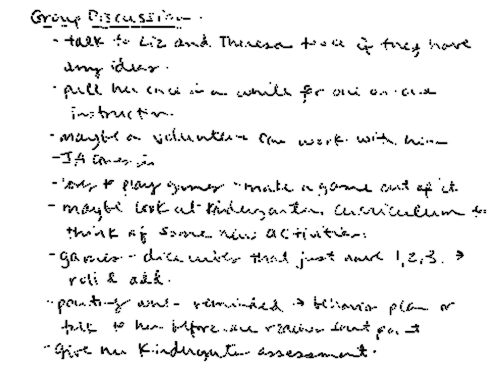 Group Discussion.
- talk to Liz and Theresa to see if they have
any ideas.
- pull her once in a while for one on one
instruction.
- maybe a volunteer can work with him
- IA comes in
- loves to play games - make a game out of it
- maybe look at Kindergarten curriculum to
think of some new activities.
- games - dice that just have 1, 2, 3. →
roll & add.
- reminded → behavior plan or
talk to her before we
- Give her Kindergarten assessment.